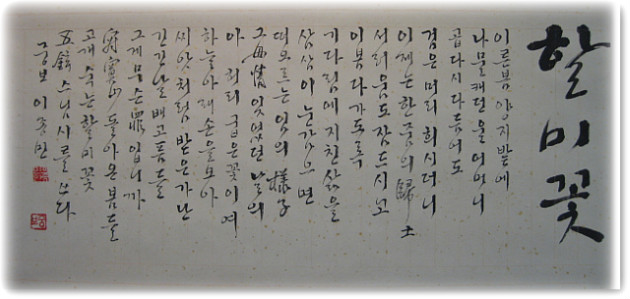 할미꽃
이른봄 양지밭에
나물캐던 울어머니
곱다시 다듬어도
검은머리 희시더니
이제는 한줌의 歸土
서러움도 잠드시고
이 봄 다 가도록
기다림에 지친 삶을
삼삼이 눈감으면
떠오르는 임의 樣子
그 母情 잊었던 날의
아 허리 굽은 꽃이여
하늘 아래 손을 모아
씨앗처럼 받은 가난
긴긴날 배고픈들
그게 무슨 罪입니까
山 돌아온 봄을
고개 숙는 할미꽃
五鉉 스님 시를 쓰다